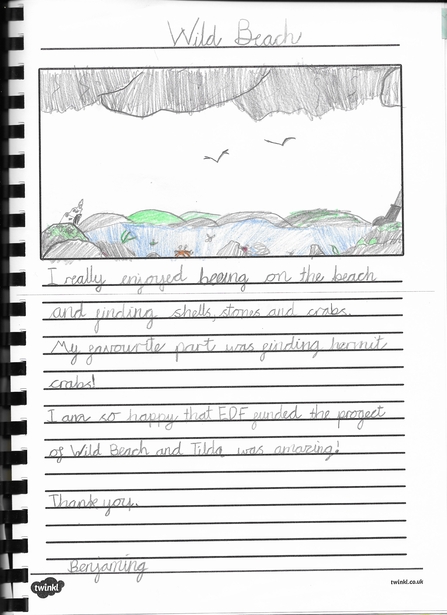 Wild Beach
I really enjoyed beeing on the beach
and finding shells, stones and crabs.
My favourite part was finding hermit
crabs!
I am so happy that EDF funded the project
of Wild Beach and Tilda was amazing!
Thank you.
Benjaming
twinkl
twinkl.co.uk